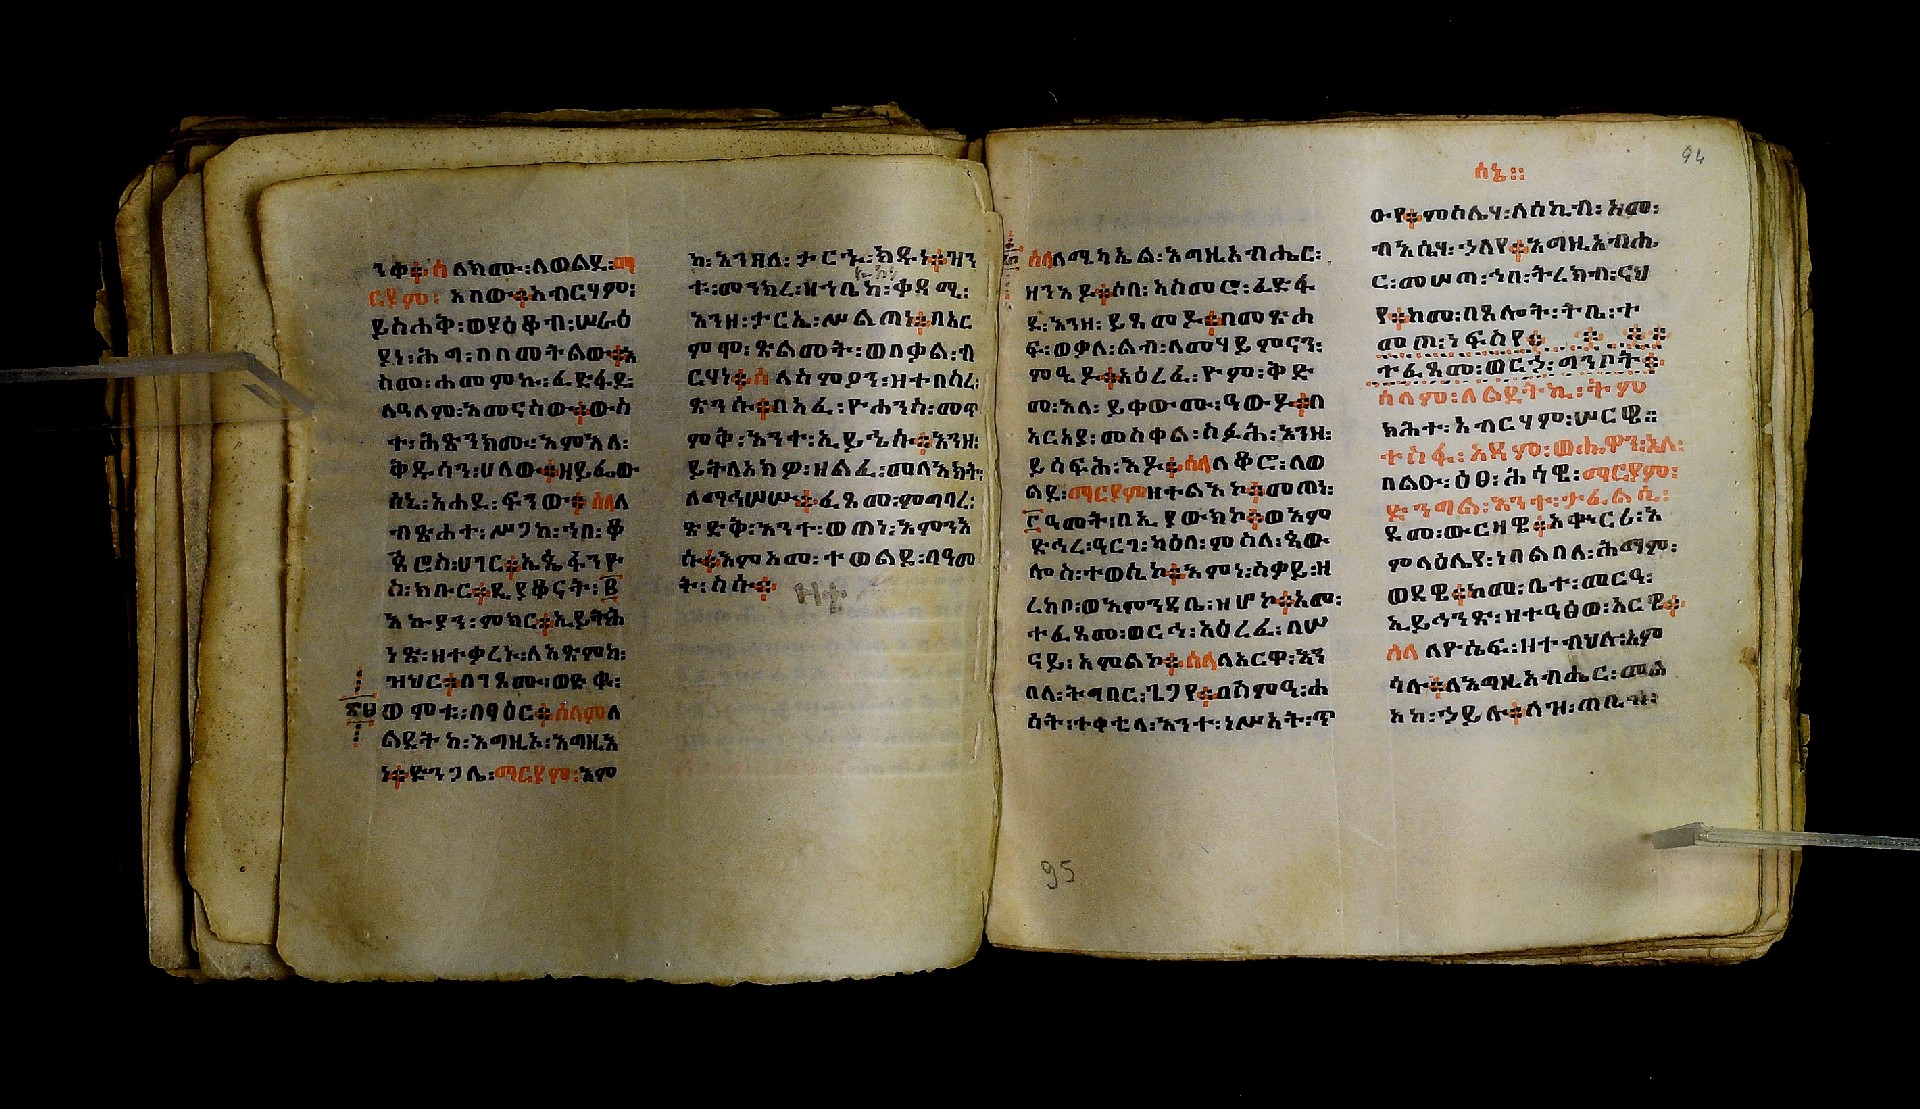 ንቀ፨ሰለክሙ፡ለወልደ፡ማ
ርያም፡አበው፨አብርሃም፡
ይስሐቅ፡ወያዕቆብ፡ሠራዕ
ያነ፡ሕግ፡በበመትልው፨አ
ስመ፡ሐመምኩ፡ፈድፋደ፡
ለዓለም፡አመናስው፨ውስ
ተ፡ሕፅንክሙ፡እምእለ፡
ቅዱሳን፡ሀለው፨ዘይፌው
ስኒ፡አሐደ፡ፍንው፨ሰላለ
ብፅሐተ፡ሥጋከ፡ኀበ፡ቆ
ጵሮስ፡ሀገር፨ኤጲፋንዮ
ስ፡ክቡር፨ዲያቆናት፡፪
እኩያን፡ምክር፨ኢይትሕ
ነፅ፡ዘተቃረኑ፡ለአፅምከ፡
ዝኅር፨በገጸሙ፡ወድቁ፡
ወምቱ፡በፃዕር፨ሰላምለ
ልደትከ፡እግዚኦ፡እግዚእ
ነ፨ድንጋሌ፡ማርያም፡እም
ከ፡እንዘለ፡ታርኁ፡ክዱነ፨ዝን
ቱ፡መንክረ፡ዘኀቤከ፡ቀዳሚ፡
እንዘ፡ታርኢ፡ሥልጠነ፨በአር
ምሞ፡ጽልመት፡ወበቃል፡ብ
ርሃነ፨ሰለስምዖን፡ዘተበስረ፡
ጽንሱ፨በአፈ፡ዮሐንስ፡መጥ
ምቅ፡እንተ፡ኢይኄሱ፨እንዘ፡
ይትለአክዎ፡ዘልፈ፡መለእክት፡
ለማኅሠሡ፨ፈጸመ፡ምግባረ፡
ጽድቅ፡እንተ፡ወጠነ፡እምንእ
ሱ፨እምአመ፡ተወልደ፡በዓመ
ት፡ስሱ፨
ሰኔ።
94
ሰላለሚካኤል፡እግዚአብሔር፡
ዘንእዶ፨ሶበ፡አስመሮ፡ፈድፋ
ደ፡እንዘ፡ይጼመዶ፨በመጽሐ
ፍ፡ወቃለ፡ልብ፡ለመሃይምናን፡
ምዒዶ፨አዕረፈ፡ዮም፡ቅድ
መ፡እለ፡ይቀውሙ፡ዓውዶ፨በ
አርአያ፡መስቀል፡ስፉሕ፡እንዘ፡
ይሰፍሕ፡እዶ፨ሰላለቆሮ፡ለወ
ልደ፡ማርያምዘተልእኮ፨መጠነ፡
፫ዓመት፡በኢያውክኮ፨ወእም
ድኅረ፡ዓርገ፡ካዕበ፡ምስለ፡ጳው
ሎስ፡ተወሲኮ፨እምነ፡ስቃይ፡ዘ
ረከቦ፡ወእምንዳቤ፡ዝሆኮ፨አመ፡
ተፈጸመ፡ወርኀ፡አዕረፈ፡በሠ
ናይ፡አምልኮ፨ሰላለአርዋ፡እን
በለ፡ትግበር፡ጌጋየ፨በሕምዒ፡ሐ
ሰት፡ተቀቲላ፡እንተ፡ነሥአት፡ጥ
ዑየ፨ምስሌሃ፡ለሰኪብ፡አመ፡
ብእሲሃ፡ኃለየ፨እግዚአብሔ
ር፡መሠጠ፡ኀበ፡ትረክብ፡ናህ
የ፨ከመ፡በጸሎት፡ትቤ፡ተ
መጠ፡ነፍስየ፨
ተፈጸመ፡ወርኃ፡ግንቦት፨
ሰላም፡ለልደትኪ፡ትም
ክሕተ፡አብርሃም፡ሠርዊ።
ተስፋ፡አዳም፡ወሔዋን፡እለ፡
በልዑ፡ዕፀ፡ሕሳዊ፡ማርያም፡
ድንግል፡እንተ፡ታፈልሲ፡
ደመ፡ውርዘዊ፨አቅኀርሪ፡እ
ምላዕሌየ፡ነበልባለ፡ሕማም፡
ወደዊ፨ከመ፡ቤተ፡መርዔ፡
ኢይኅንጽ፡ዘተዓፅወ፡አርዌ፨
ሰላ ለዮሴፍ፡ዘተብህለ፡እም
ሳሉ፨ለእግዚአብሔር፡መል
አከ፡ኃይሉ፨ለዝ፡ጠቢብ፡
95